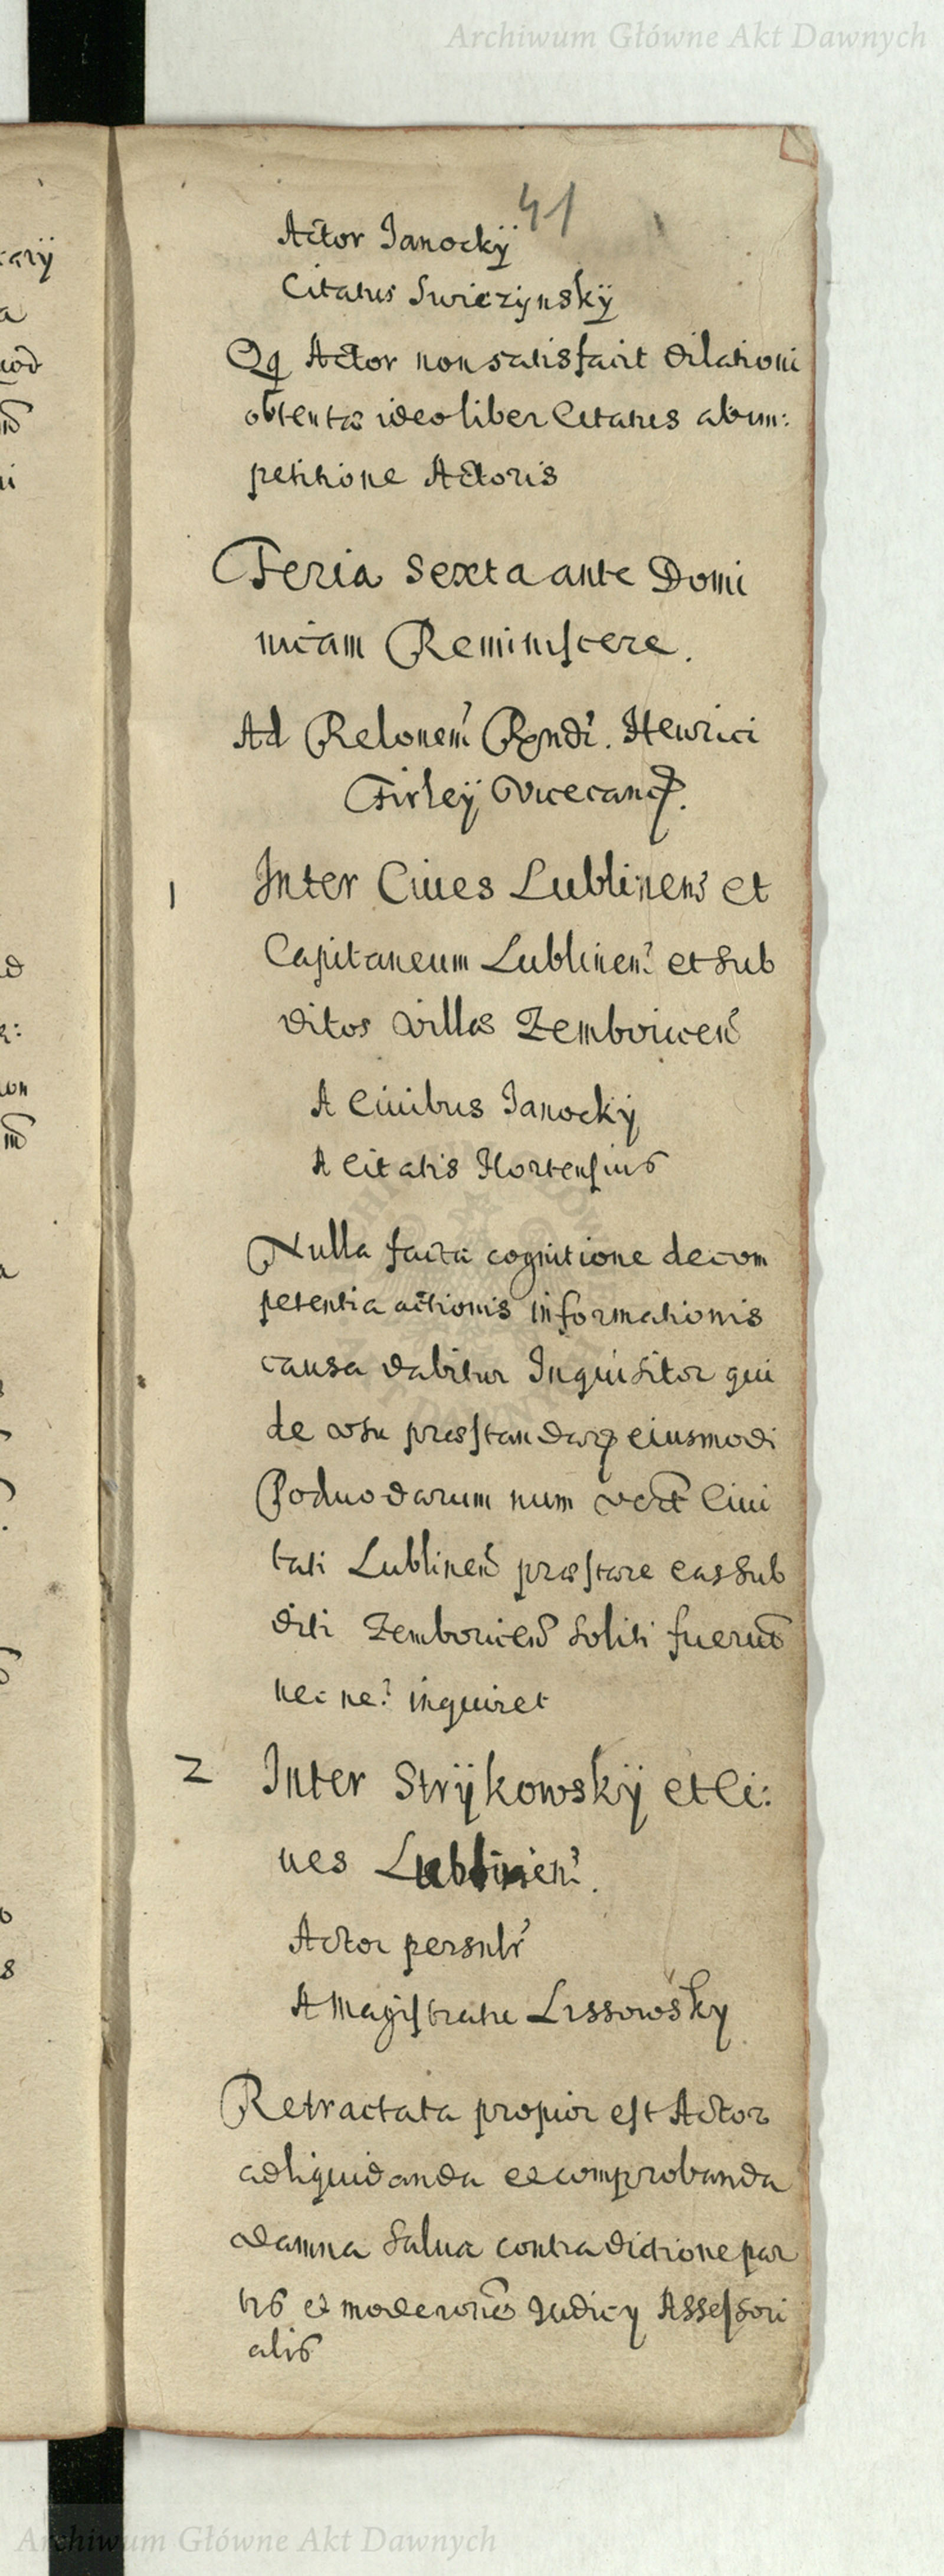 Archiwum Główne Akt Dawnych
41
Actor Janockÿ
Citatus Swiczÿnskÿ
Qq Actor non satisfacit dilationi
obtentæ ideo liber Citatus ab im:
petitione Actoris
Feria Sexta ante Domi
nicam Reminiscere.
Ad Relonem Rndi. Henrici
Firleÿ Vicecanc.
1 Inter Ciues Lublinen et
Capitaneum Lublinen et Sub
ditos villæ Zemboricen
A Ciuibus Janockÿ
A Citatis Hortensius
Nulla facta cognitione de com
petentia actionis informationis
causa dabitur Inquisitor qui
de usu præstandarq eiusmodi
Poduodarum num
Ciui
tati Lublinen præstare eas Sub
diti Zemboricen Soliti fuerut
nec ne? inquiret
2 Inter Strÿkowskÿ et Ci:
ues Lublinen.
Actor persnlr
A Magistratu Lissowsky
Retractata propior est Actor
ad liquidanda et comprobanda
damna Salua contradictione par
tis et moderone Judicÿ Assessori
alis
Archiwum Główne Akt Dawnych